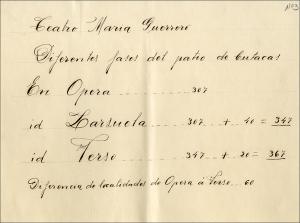 Nº 3
Teatro Maria Guerrero
Diferentes fases del patio de butacas
En Opera ........ 307
id Zarzuela ........ 307 + 40 = 347
id Verso ........ 347 + 20 = 367
Diferencia de localidades de Opera á Verso .. 60